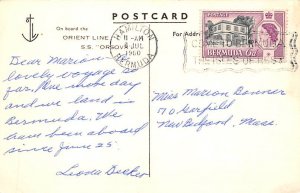 POSTCARD
On board the
ORIENT LINE
S.S. "ORSOVA"
For Addre
HAMILTON
11-AM
JUL
1960
BERMUDA
POSTAGE
BERMUDA
Dear Marion
lovely voyage so
far. One more day
and we land in
Bermuda. We
have been aboard
since June 25.
Miss Marion Bonner
New Bedford, Mass.